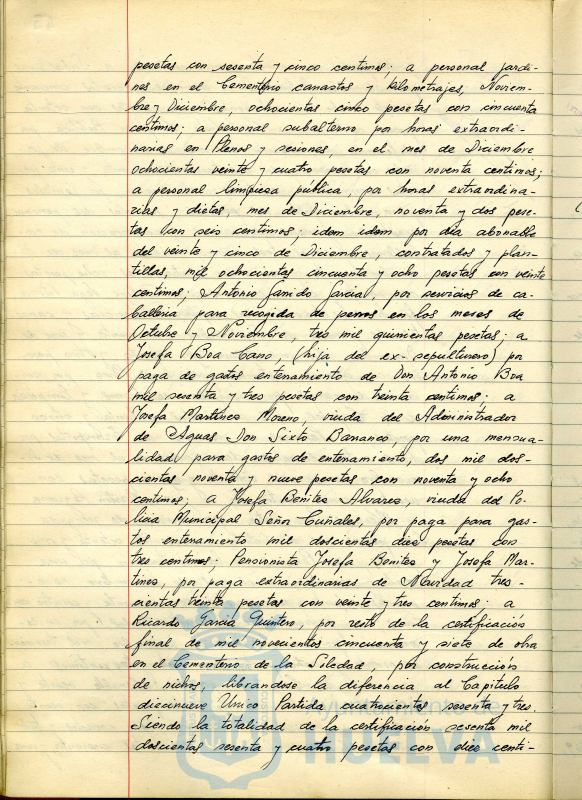 pesetas con sesenta y cinco centimos; a personal jardi-
nes en el Cementerio canastos y kilometrajes, Noviem-
bre y Diciembre, ochocientas cinco pesetas con cincuenta
centimos; a personal subalterno por horas extraordi-
narias en Plenos y sesiones, en el mes de Diciembre
ochocientas veinte y cuatro pesetas con noventa centimos;
a personal limpieza publica, por horas extraordina-
rias y dietas, mes de Diciembre, noventa y dos pese-
tas con seis centimos; idem idem por dia abonable
del veinte y cinco de Diciembre, contratados y plan-
tillas, mil ochocientas cincuenta y ocho pesetas con veinte
centimos; Antonio Garrido Garcia, por servicios de ca-
balleria para recogida de perros en los meses de
Octubre y Noviembre, tres mil quinientas pesetas; a
Josefa Boa Cano, (hija del ex-sepulturero) por
paga de gastos enterramiento de Don Antonio Boa
mil sesenta y tres pesetas con treinta centimos; a
Josefa Martinez Moreno, viuda del Administrador
de Aguas Don Sixto Barranco, por una mensua-
lidad para gastos de enterramiento, dos mil dos-
cientas noventa y nueve pesetas con noventa y ocho
centimos; a Josefa Benitez Alvarez, viuda del Po-
licia Municipal Señor Cuñales, por paga para gas-
tos enterramiento mil doscientas diez pesetas con
tres centimos; Pensionista Josefa Benitez y Josefa Mar-
tinez, por paga extraordinarias de Navidad tres-
cientas treinta pesetas con veinte y tres centimos; a
Ricardo Garcia Quintero, por resto de la certificación
final de mil novecientos cincuenta y siete de obra
en el Cementerio de la Soledad, por construccion
de nichos, librandose la diferencia al Capitulo
diecinueve Unico Partida cuatrocientas sesenta y tres.
Siendo la totalidad de la certificación sesenta mil
doscientas sesenta y cuatro pesetas con diez centi-
HUELVA